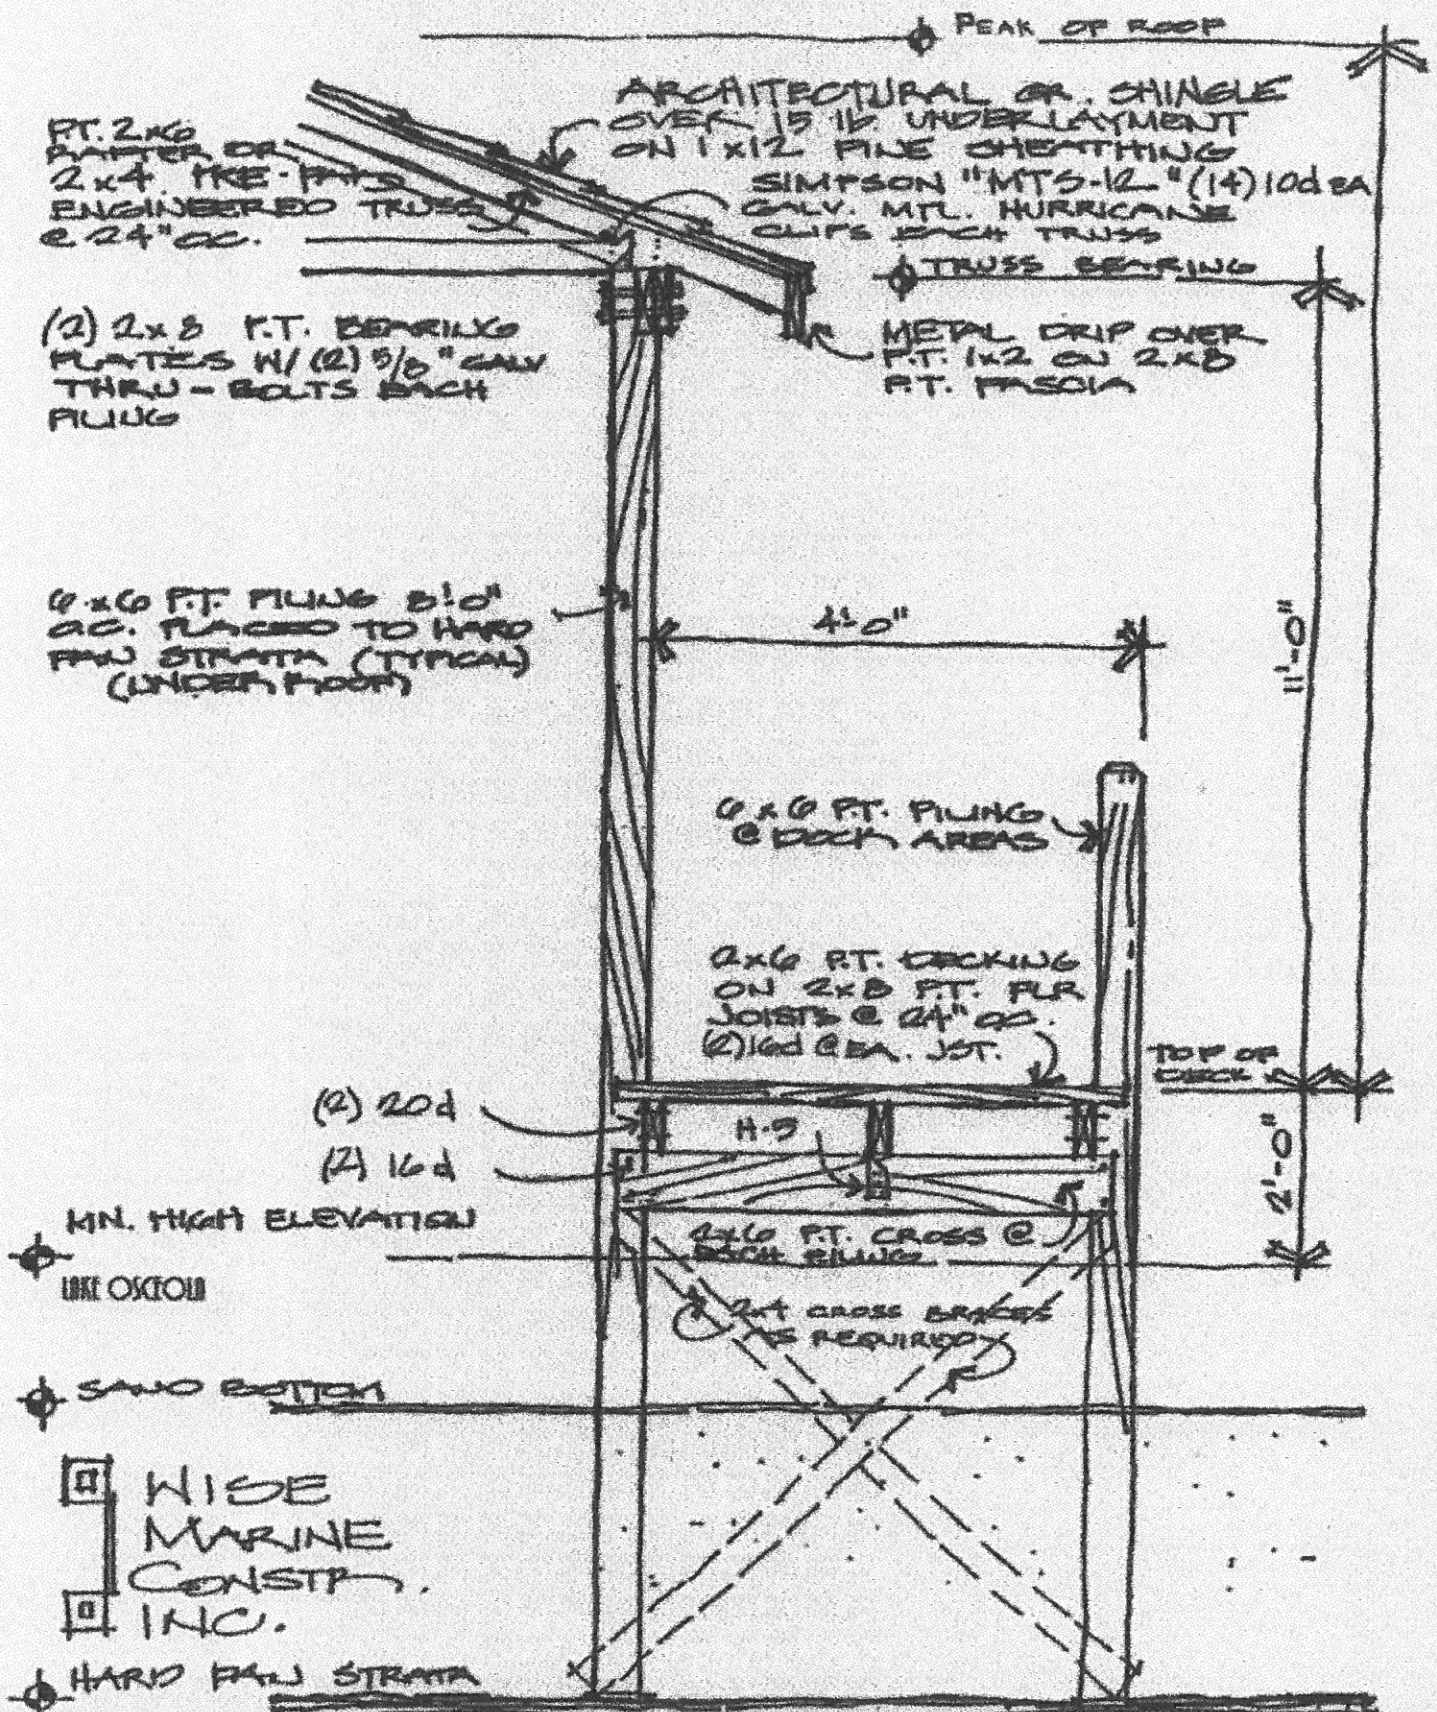 PEAK OF ROOF
ARCHITECTURAL GR. SHINGLE
OVER 15 lb. UNDERLAYMENT
ON 1x12 PINE SHEATHING
P.T. 2x6
RAFTER OR
2x4 PRE-FAB
ENGINEERED TRUSS
@ 24" O.C.
SIMPSON "MTS-12" (14) 10d EA
GALV. MTL. HURRICANE
CLIPS EACH TRUSS
TRUSS BEARING
(2) 2x8 P.T. BEARING
PLATES W/ (2) 5/8" GALV
THRU-BOLTS EACH
PILING
METAL DRIP OVER
P.T. 1x2 ON 2x8
P.T. FASCIA
6x6 P.T. PILING 8'-0"
O.C. PLACED TO HARD
PAN STRATA (TYPICAL)
(UNDER ROOF)
4'-0"
11'-0"
6x6 P.T. PILING
@ DOCK AREAS
2x6 P.T. DECKING
ON 2x8 P.T. FLR
JOISTS @ 24" O.C.
(2) 16d @ EA. JST.
TOP OF
DECK
(2) 20d
H-5
(2) 16d
2'-0"
MN. HIGH ELEVATION
LAKE OSCEOLA
2x6 P.T. CROSS @
EACH PILING
2x4 CROSS BRACES
AS REQUIRED
SAND BOTTOM
WISE
MARINE
CONSTR.
INC.
HARD PAN STRATA